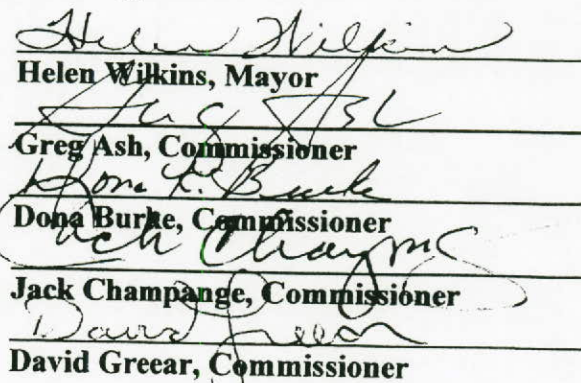 Helen Wilkins
Helen Wilkins, Mayor
Greg Ash
Greg Ash, Commissioner
Dona K. Burke
Dona Burke, Commissioner
Jack Champ
Jack Champange, Commissioner
David Greear
David Greear, Commissioner